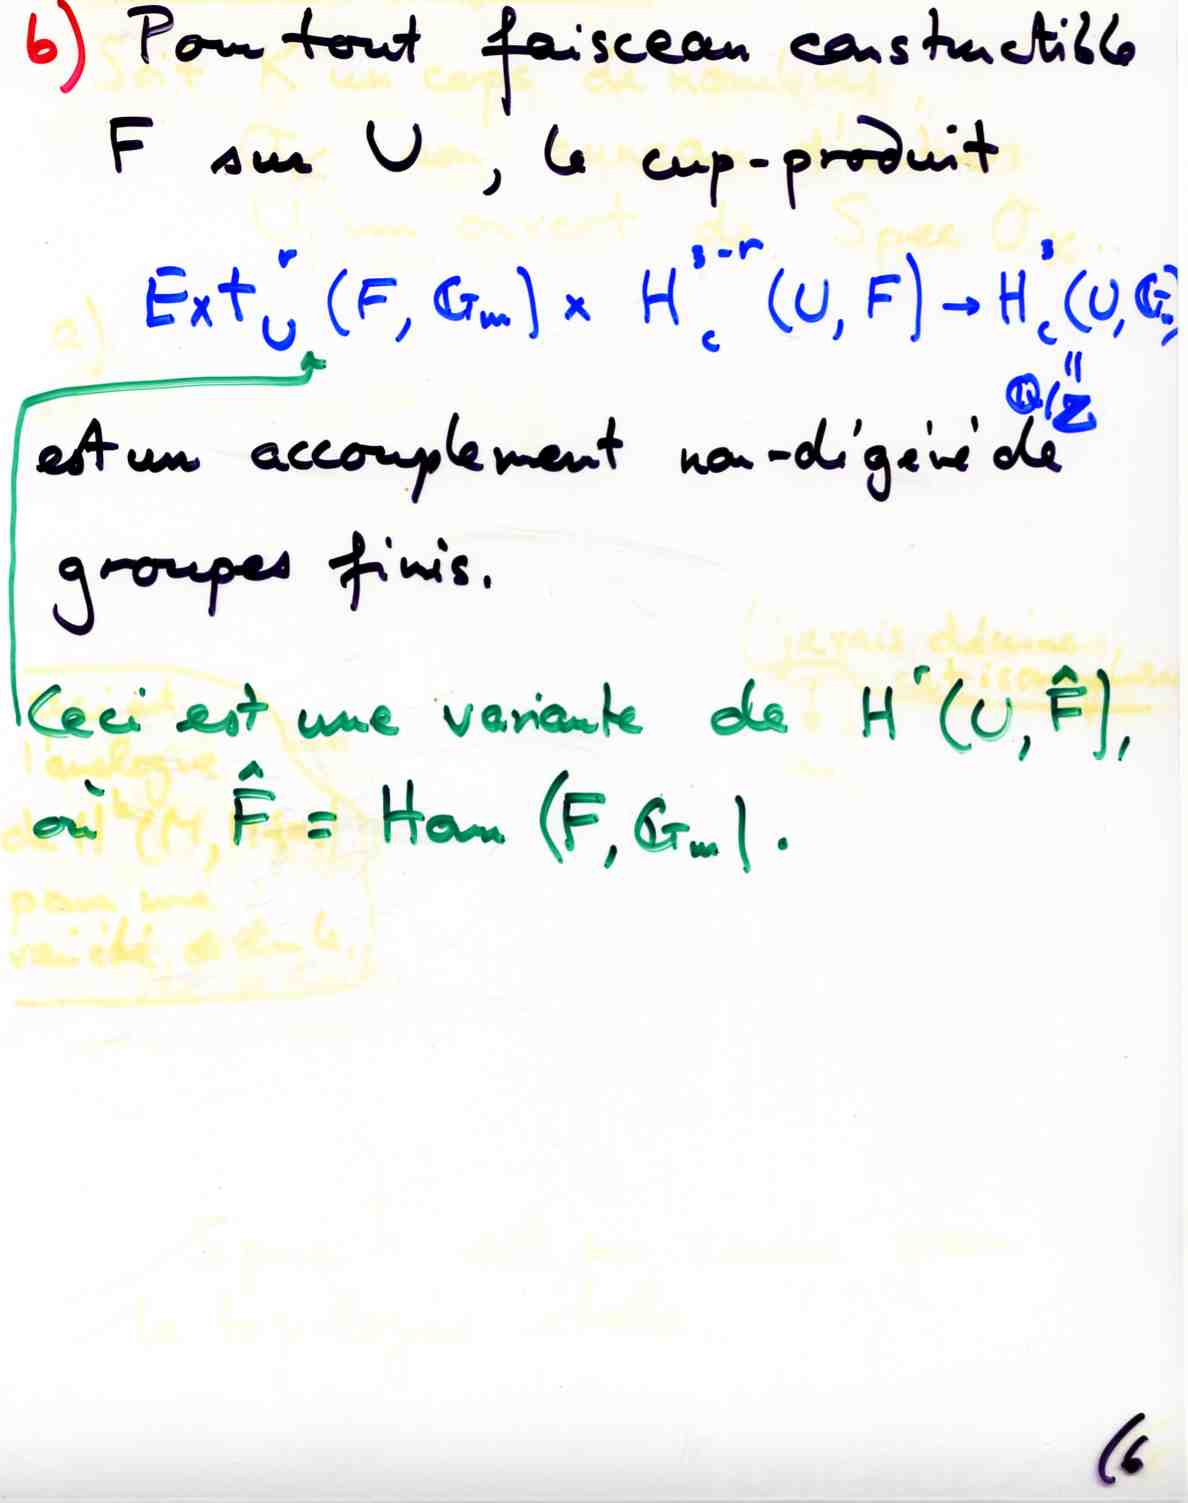 b) Pour tout faisceau constructible
F sur U, le cup-produit
Ext^r_U (F, 𝔾_m) × H^{3-r}_c (U, F) → H^3_c (U, 𝔾_m)
=
ℚ/ℤ
est un accouplement non-dégénéré de
groupes finis.
Ceci est une variante de H^r (U, F̂),
où F̂ = Hom (F, 𝔾_m).
(6